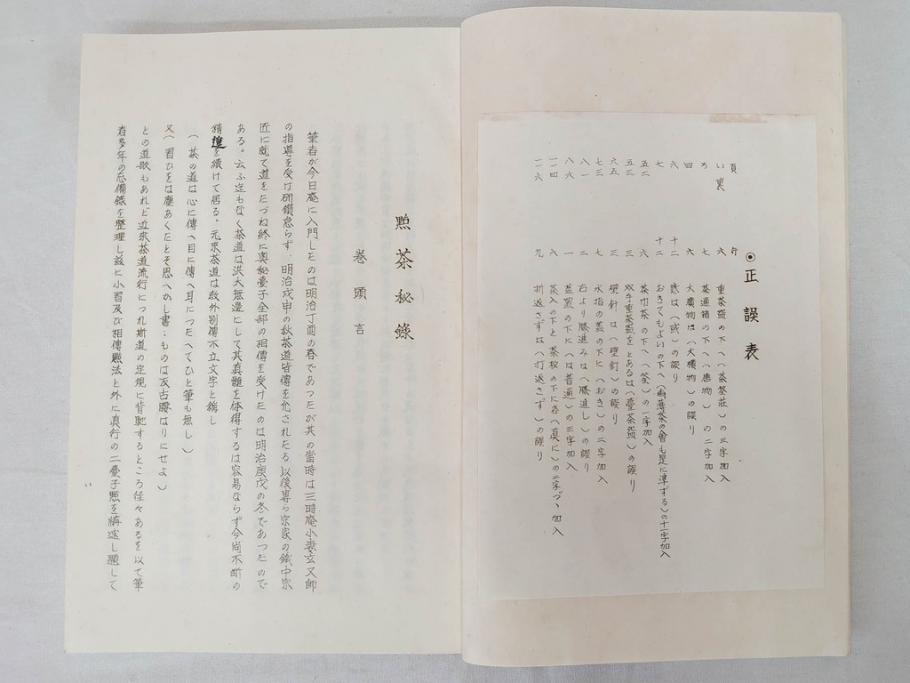 ◉正誤表
頁 行
い裏 六 重茶碗の下へ(茶筌莊)の三字加入
ろ 七 茶通箱の下へ(唐物)の二字加入
四 六 大廣物は(大横物)の誤り
六 十二 惑は(或)の誤り
七 十二 おきてもよいの下へ(薄茶の會も是に準ずる)の十一字加入
五二 六 茶巾茶の下へ(筌)の一字加入
五三 三 双手重茶碗をとあるは(臺茶碗)の誤り
六五 三 壁釘は(壁釘)の誤り
七三 七 水指の蓋の下に(おき)の二字加入
八一 二 右より膝進みは(膝進し)の誤り
八六 一 蓋置の下に(は普通)の三字加入
一二四 八 茶入の下と茶杓の下に各(真に)の二字づゝ加入
一二六 九 折返さずは(打返さず)の誤り
點茶秘錄
巻頭言
筆者が今日庵に入門したのは明治丁酉の春であつたが其の當時は三時庵小妻玄又師
の指導を受け研鑽怠らず、明治戊申の秋茶道皆傳を允されたる以後專ら宗家の鐵中宗
匠に就て道をたづね終に奥秘臺子全部の相傳を受けたのは明治庚戌の冬であつたので
ある。云ふ迄もなく茶道は洪大無邊にして其真髓を体得するは容易ならず今尚不断の
精進を續けて居る。元来茶道は教外別傳不立文字と稱し
(茶の道は心に傳へ目に傳へ耳につたへてひと筆も無し)
又(習ひをは塵あくたとそ思へかし書:ものは反古腰はりにせよ)
との道歌もあれど近来茶道流行につれ斯道の定規に背馳するところ往々あるを以て筆
者多年の忘備録を整理し茲に小習及び相傳點法と外に真行の二臺子點を編述し題して
い